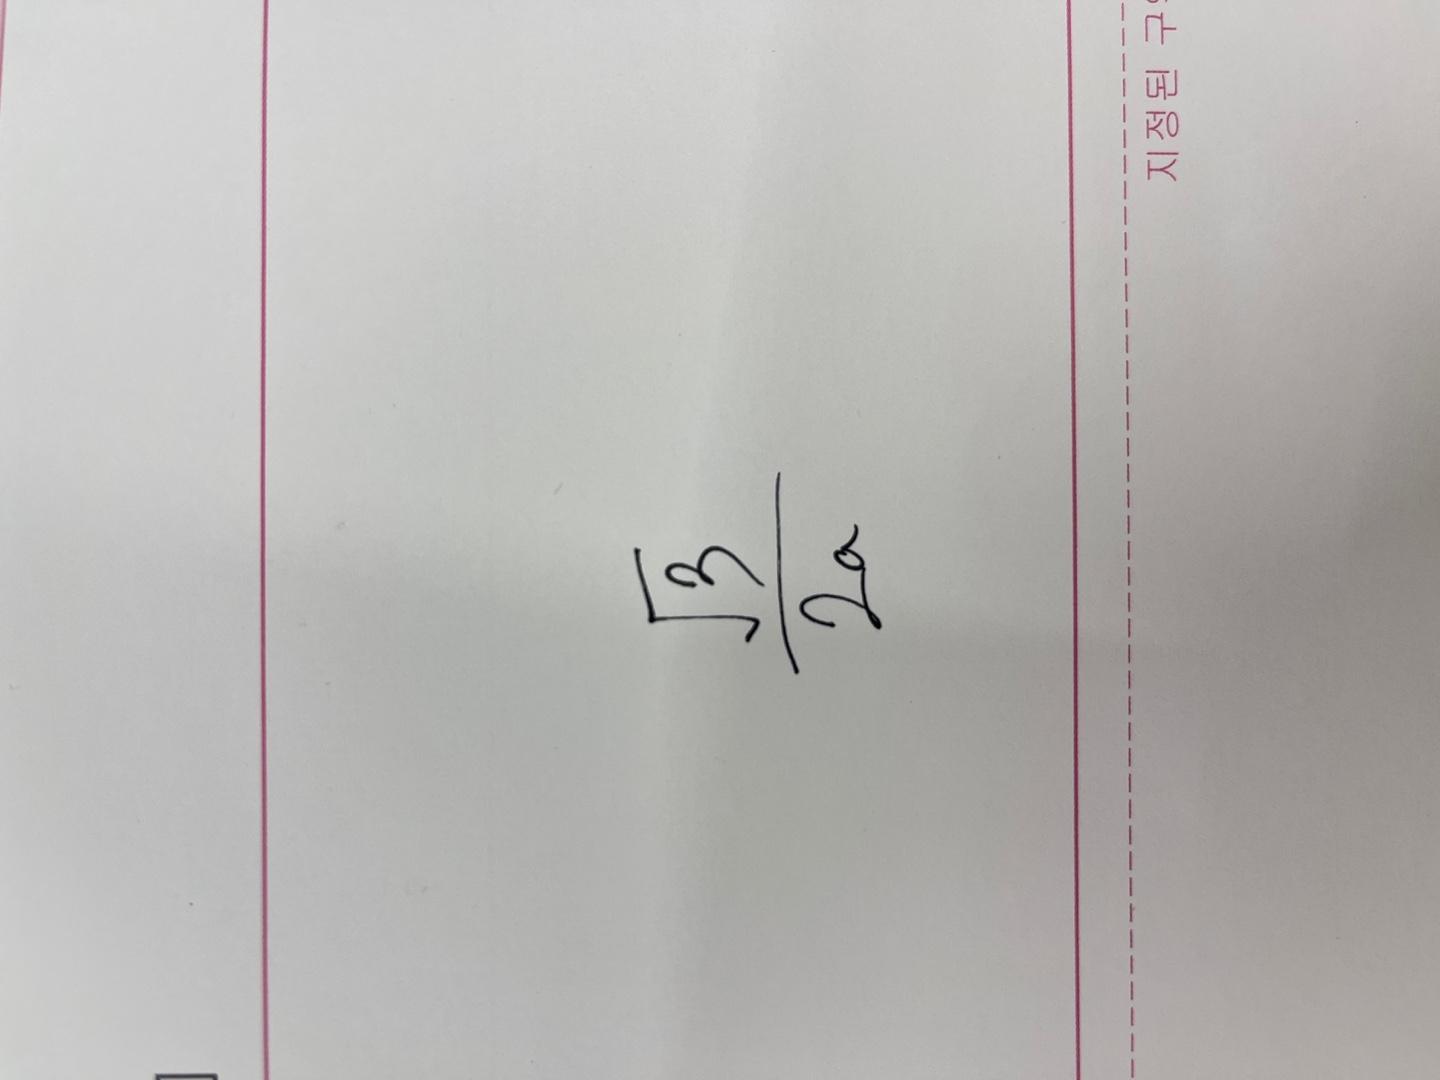 √3/2a
지정된